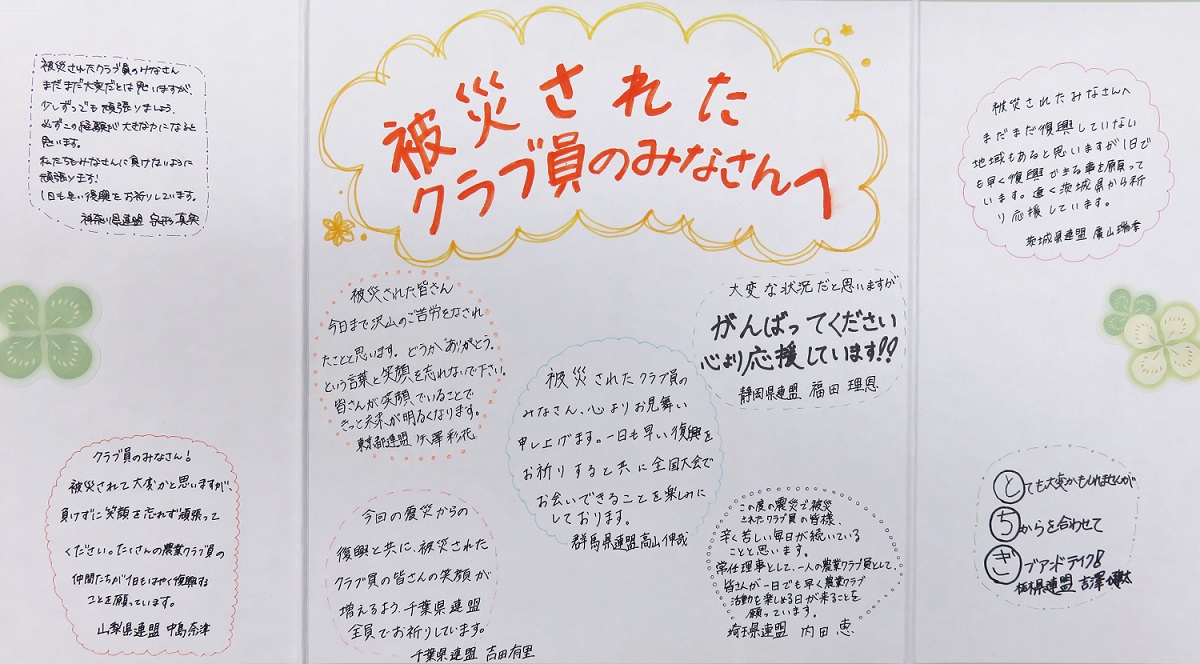 被災された
クラブ員のみなさんへ
被災されたクラブ員のみなさん
まだまだ大変だとは思いますが、
少しずつでも頑張りましょう。
必ずこの経験が大きな力になると
思います。
私たちもみなさんに負けないように
頑張ります!
1日も早い復興をお祈りしています。
神奈川県連盟 真実
クラブ員のみなさん!
被災されて大変かと思いますが、
負けずに笑顔を忘れず頑張って
ください。たくさんの農業クラブ員の
仲間たちが1日もはやく復興する
ことを願っています。
山梨県連盟 中島奈津
被災された皆さん
今日まで沢山のご苦労をなされ
たことと思います。どうか"ありがとう"
という言葉と笑顔を忘れないで下さい。
皆さんが笑顔でいることで
きっと未来が明るくなります。
東京都連盟 矢澤彩花
今回の震災からの
復興と共に、被災された
クラブ員の皆さんの笑顔が
増えるよう、千葉県連盟
全員でお祈りしています。
千葉県連盟 吉田有里
被災されたクラブ員の
みなさん、心よりお見舞い
申し上げます。一日も早い復興を
お祈りすると共に全国大会で
お会いできることを楽しみに
しております。
群馬県連盟 高山伸哉
大変な状況だと思いますが
がんばってください
心より応援しています!!
静岡県連盟 福田 理恩
この度の震災で被災
されたクラブ員の皆様、
辛く苦しい毎日が続いている
ことと思います。
常任理事として、一人の農業クラブ員として、
皆さんが一日でも早く農業クラブ
活動を楽しめる日が来ることを
願っています。
埼玉県連盟 内田 恵
被災されたみなさんへ
まだまだ復興していない
地域もあると思いますが1日で
も早く復興できる事を願って
います。遠く茨城県から祈
り応援しています。
茨城県連盟 廣山瑞季
とても大変かもしれませんが
ちからを合わせて
ギブアンドテイク!
栃木県連盟 吉澤健太